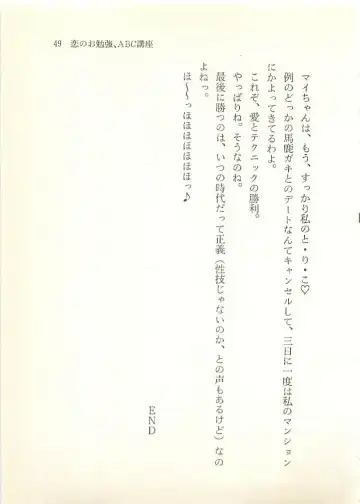 49 恋のお勉強、ABC講座
マイちゃんは、もう、すっかり私のと・り・こ♡
例のどっかの馬鹿ガキとのデートなんてキャンセルして、三日に一度は私のマンション
にかよってきてるわよ。
これぞ、愛とテクニックの勝利。
やっぱりね。そうなのね。
最後に勝つのは、いつの時代だって正義（性技じゃないのか、との声もあるけど）なの
よねっ。
ほ〜〜っほほほほほほほっ♪
END